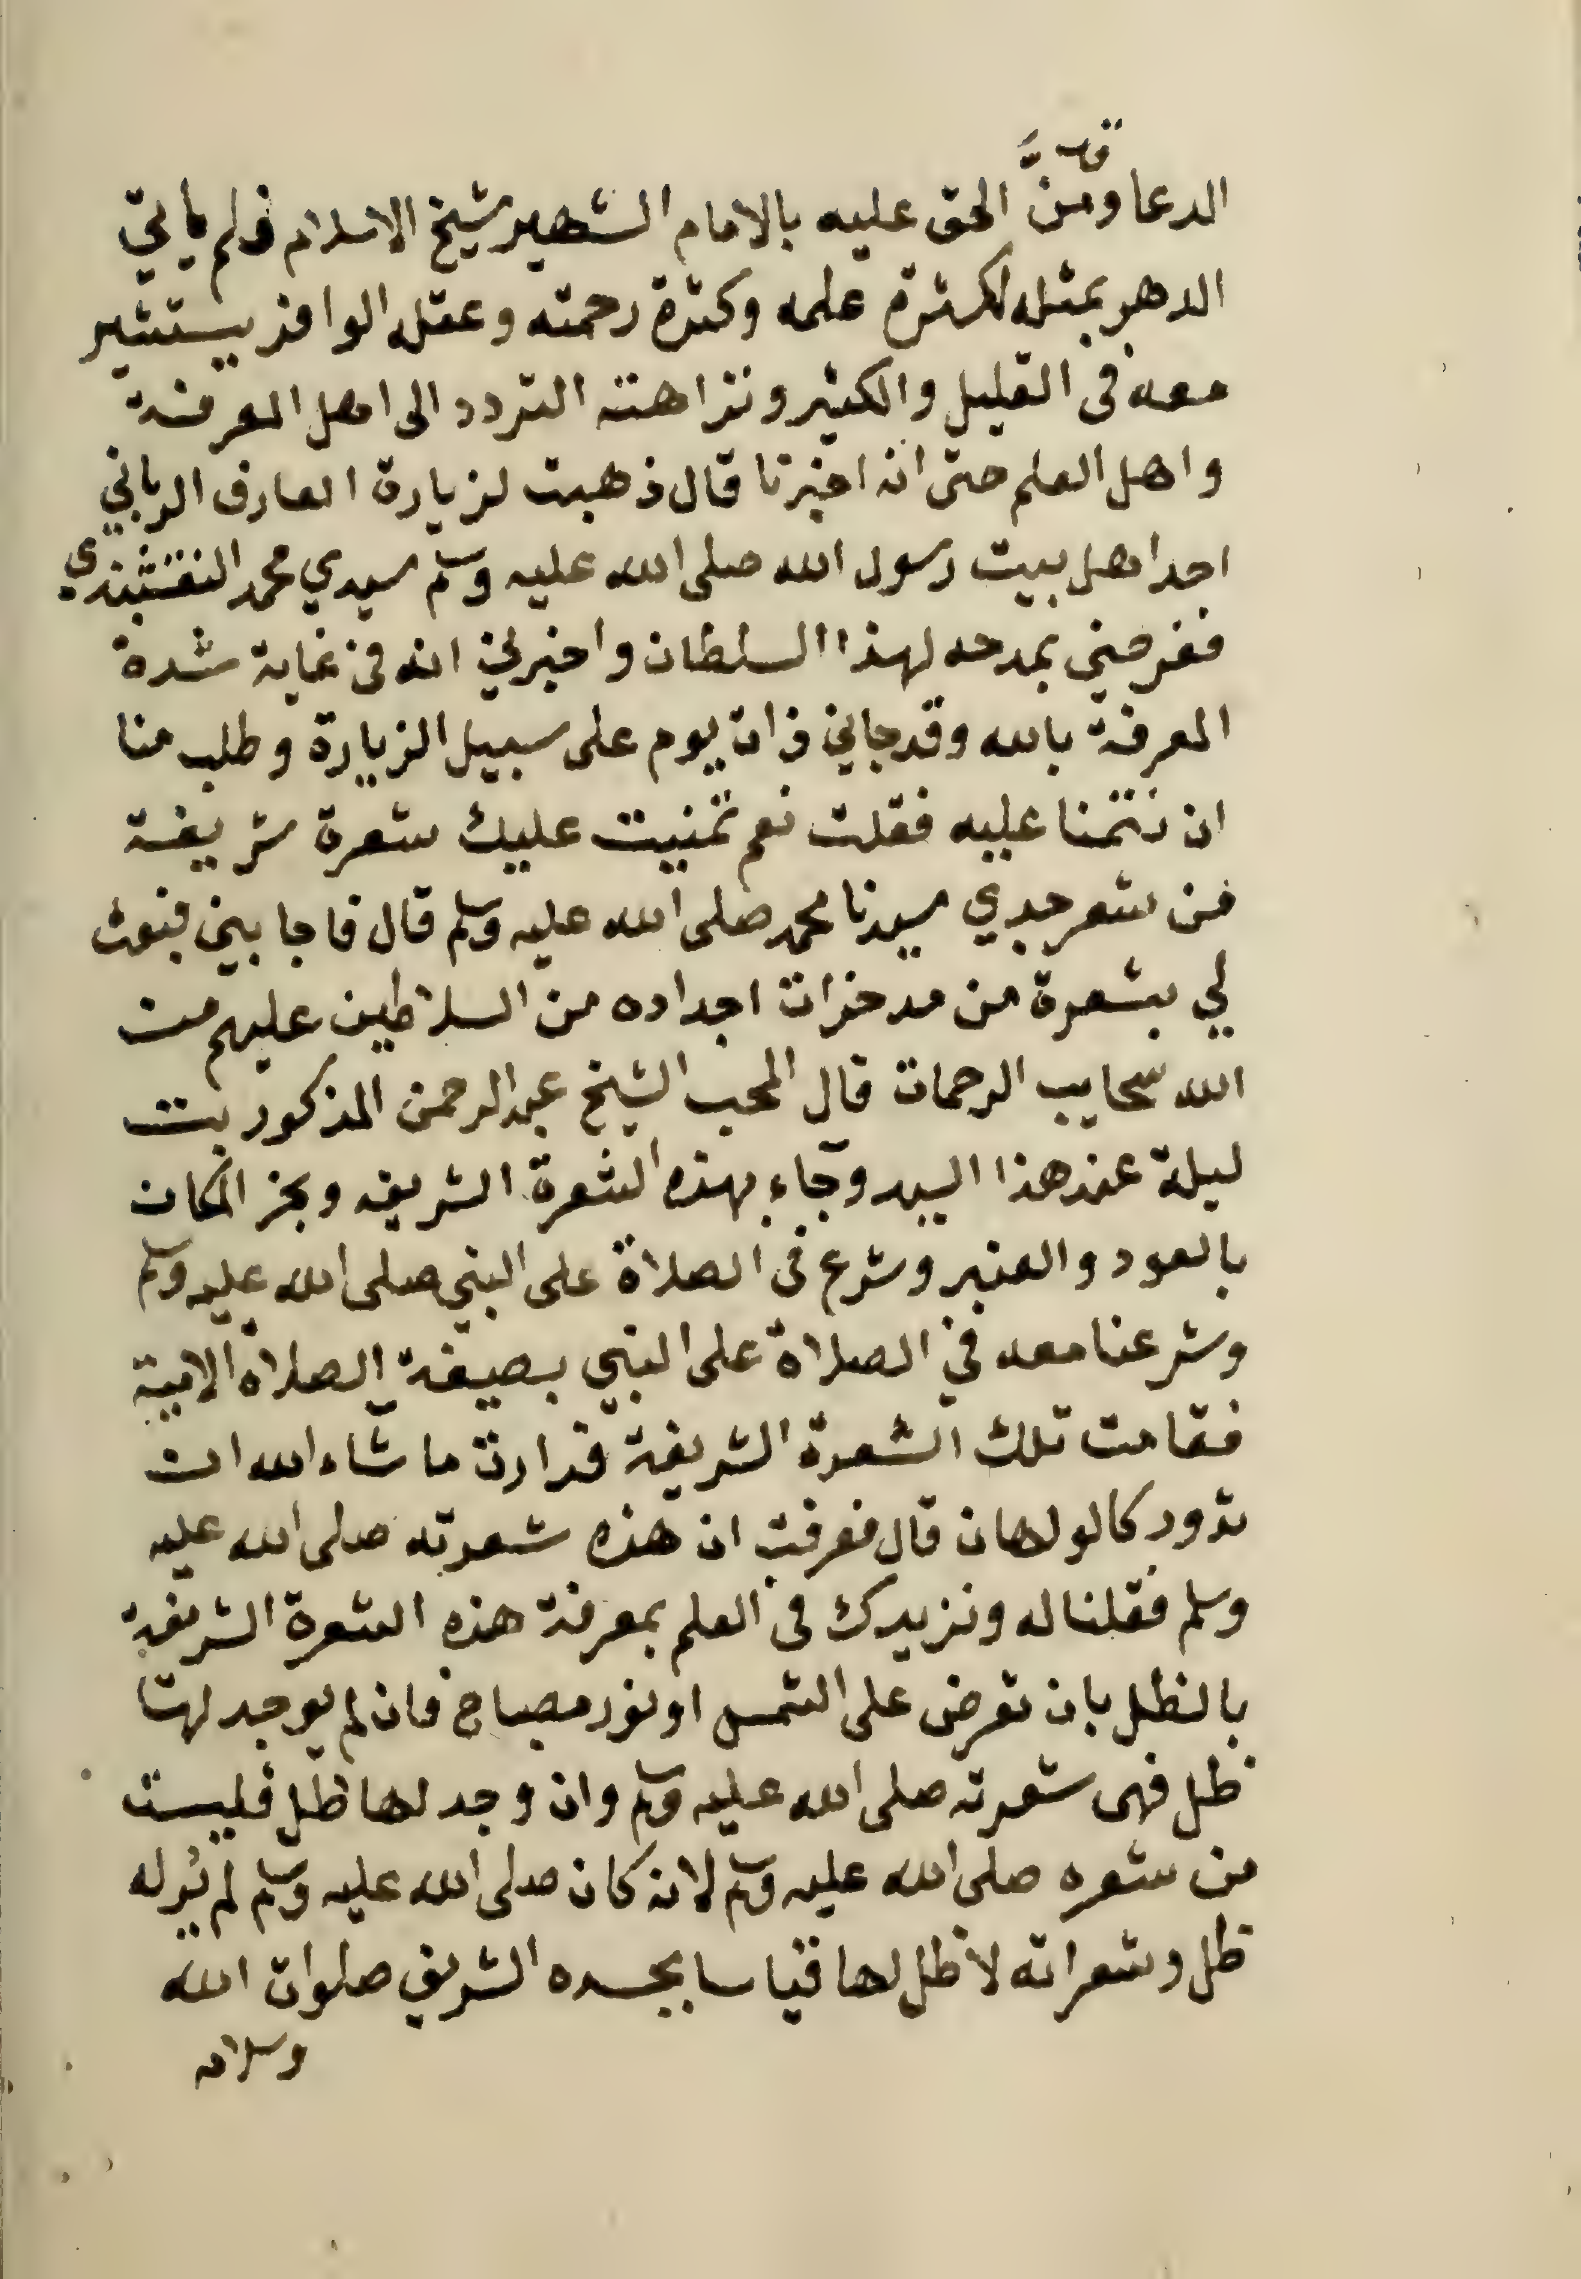 الدعا وقد منَّ الحق عليه بالامام الشهير شيخ الاسلام فلم ياتي
الدهر بمثله لكثرة علمه وكثرة رحمته وعقله الوافر يستشير
معه فى القليل والكثير ونزاهته التردد الى اهل المعرفة
واهل العلم حتى انه اخبرنا قال ذهبت لزيارة العارف الرباني
احد اهل بيت رسول الله صلى الله عليه وسلم سيدي محمد النقشبندي
ففرحني بمدحه لهذا السلطان واخبرني انه فى غاية شدة
المعرفة بالله وقد جاني ذات يوم على سبيل الزيارة وطلب منا
ان نتمنا عليه فقلت نعم تمنيت عليك شعرة شريفة
من شعر جدي سيدنا محمد صلى الله عليه وسلم قال فاجابني فبعث
لي بشعرة من مدخرات اجداده من السلاطين عليهم من
الله سحايب الرحمات قال المحب الشيخ عبد الرحمن المذكور بت
ليلة عند هذا السيد وجاء بهذه الشعرة الشريفه وبخر المكان
بالعود والعنبر وشرع فى الصلاة على النبي صلى الله عليه وسلم
وشرعنا معه في الصلاة على النبي بصيغة الصلاة الامية
فقامت تلك الشعرة الشريفة فدارت ما شاء الله ان
تدور كالولهان قال فعرفت ان هذه شعرته صلى الله عليه
وسلم فقلنا له ونزيدك فى العلم بمعرفة هذه الشعرة الشريفة
بالظل بان تعرض على الشمس او نور مصباح فان لم يوجد لها
ظل فهى شعرته صلى الله عليه وسلم وان وجد لها ظل فليست
من شعره صلى الله عليه وسلم لانه كان صلى الله عليه وسلم لم يُر له
ظل وشعراته لا ظل لها قياسا بجسده الشريف صلوات الله
وسلامه